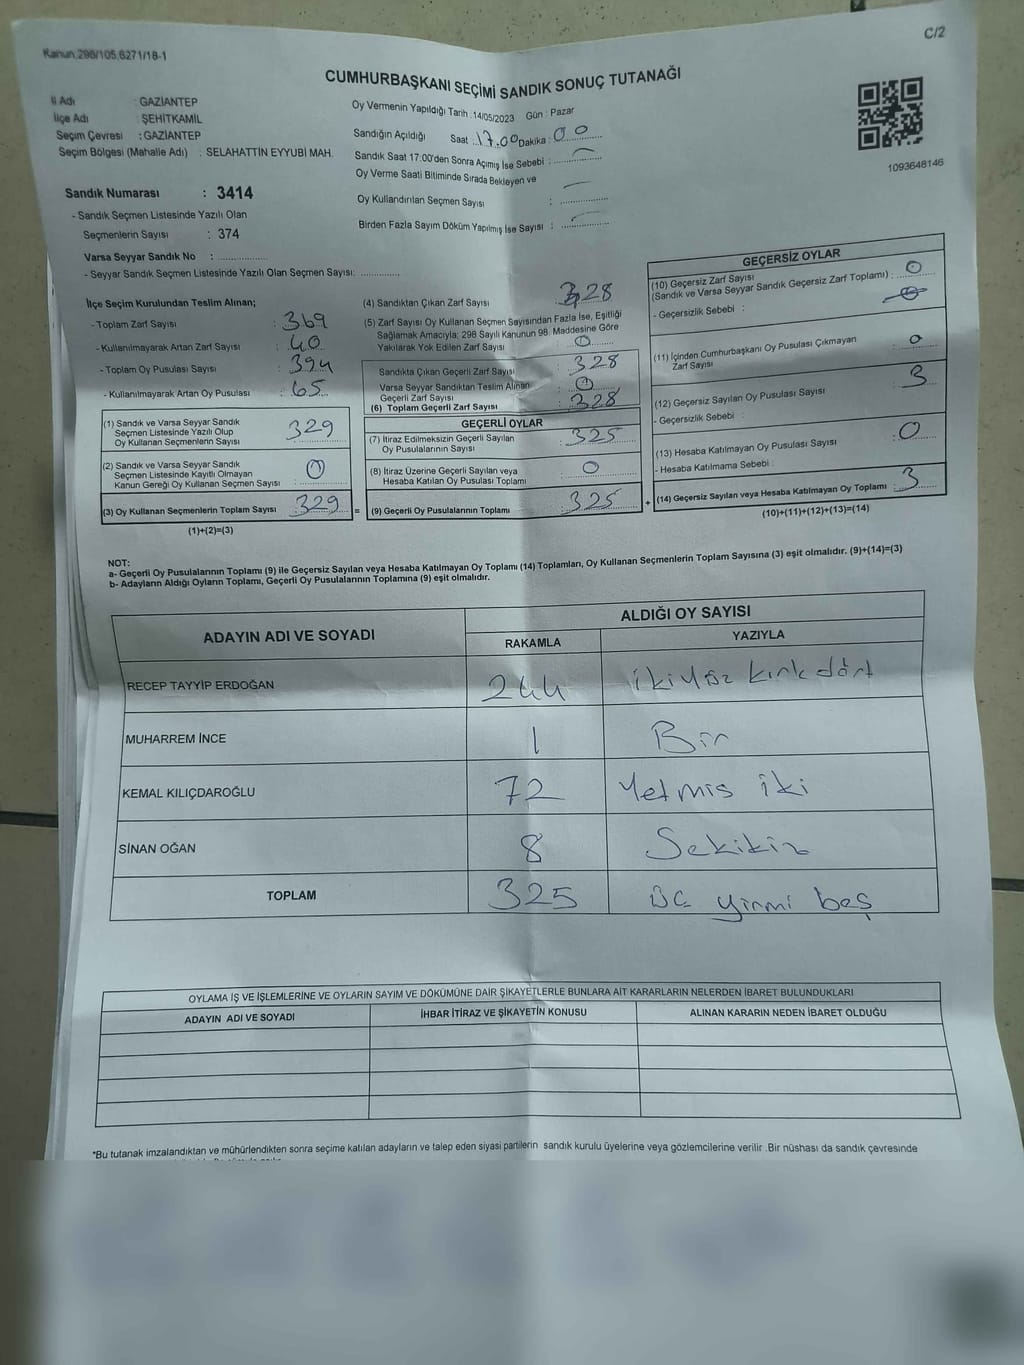 Kanun,298/105,6271/18-1
C/2
CUMHURBAŞKANI SEÇİMİ SANDIK SONUÇ TUTANAĞI
İl Adı : GAZİANTEP
İlçe Adı : ŞEHİTKAMİL
Seçim Çevresi : GAZİANTEP
Seçim Bölgesi (Mahalle Adı) : SELAHATTİN EYYUBİ MAH.
Oy Vermenin Yapıldığı Tarih : 14/05/2023 Gün : Pazar
Sandığın Açıldığı Saat : 17.00 Dakika : 00
Sandık Saat 17:00'den Sonra Açımış İse Sebebi :
Oy Verme Saati Bitiminde Sırada Bekleyen ve
Oy Kullandırılan Seçmen Sayısı :
Birden Fazla Sayım Döküm Yapılmış İse Sayısı :
1093646146
Sandık Numarası : 3414
- Sandık Seçmen Listesinde Yazılı Olan
Seçmenlerin Sayısı : 374
Varsa Seyyar Sandık No :
- Seyyar Sandık Seçmen Listesinde Yazılı Olan Seçmen Sayısı:
İlçe Seçim Kurulundan Teslim Alınan;
- Toplam Zarf Sayısı : 369
- Kullanılmayarak Artan Zarf Sayısı : 40
- Toplam Oy Pusulası Sayısı : 394
- Kullanılmayarak Artan Oy Pusulası : 65
(1) Sandık ve Varsa Seyyar Sandık
Seçmen Listesinde Yazılı Olup
Oy Kullanan Seçmenlerin Sayısı : 329
(2) Sandık ve Varsa Seyyar Sandık
Seçmen Listesinde Kayıtlı Olmayan
Kanun Gereği Oy Kullanan Seçmen Sayısı : 0
(3) Oy Kullanan Seçmenlerin Toplam Sayısı : 329 =
(1)+(2)=(3)
(4) Sandıktan Çıkan Zarf Sayısı : 328
(5) Zarf Sayısı Oy Kullanan Seçmen Sayısından Fazla İse, Eşitliği
Sağlamak Amacıyla; 298 Sayılı Kanunun 98. Maddesine Göre
Yakılarak Yok Edilen Zarf Sayısı : 0
Sandıkta Çıkan Geçerli Zarf Sayısı : 328
Varsa Seyyar Sandıktan Teslim Alınan
Geçerli Zarf Sayısı : 0
(6) Toplam Geçerli Zarf Sayısı : 328
GEÇERLİ OYLAR
(7) İtiraz Edilmeksizin Geçerli Sayılan
Oy Pusulalarının Sayısı : 325
(8) İtiraz Üzerine Geçerli Sayılan veya
Hesaba Katılan Oy Pusulası Toplamı : 0
(9) Geçerli Oy Pusulalarının Toplamı : 325 +
GEÇERSİZ OYLAR
(10) Geçersiz Zarf Sayısı
(Sandık ve Varsa Seyyar Sandık Geçersiz Zarf Toplamı) : 0
- Geçersizlik Sebebi :
(11) İçinden Cumhurbaşkanı Oy Pusulası Çıkmayan
Zarf Sayısı : 0
(12) Geçersiz Sayılan Oy Pusulası Sayısı : 3
- Geçersizlik Sebebi :
(13) Hesaba Katılmayan Oy Pusulası Sayısı : 0
- Hesaba Katılmama Sebebi :
(14) Geçersiz Sayılan veya Hesaba Katılmayan Oy Toplamı : 3
(10)+(11)+(12)+(13)=(14)
NOT:
a- Geçerli Oy Pusulalarının Toplamı (9) ile Geçersiz Sayılan veya Hesaba Katılmayan Oy Toplamı (14) Toplamları, Oy Kullanan Seçmenlerin Toplam Sayısına (3) eşit olmalıdır. (9)+(14)=(3)
b- Adayların Aldığı Oyların Toplamı, Geçerli Oy Pusulalarının Toplamına (9) eşit olmalıdır.
ADAYIN ADI VE SOYADI ALDIĞI OY SAYISI
RAKAMLA YAZIYLA
RECEP TAYYİP ERDOĞAN 244 ikiyüz kırk dört
MUHARREM İNCE 1 Bir
KEMAL KILIÇDAROĞLU 72 Yetmis iki
SİNAN OĞAN 8 Sekikiz
TOPLAM 325 üç yirmi beş
OYLAMA İŞ VE İŞLEMLERİNE VE OYLARIN SAYIM VE DÖKÜMÜNE DAİR ŞİKAYETLERLE BUNLARA AİT KARARLARIN NELERDEN İBARET BULUNDUKLARI
ADAYIN ADI VE SOYADI İHBAR İTİRAZ VE ŞİKAYETİN KONUSU ALINAN KARARIN NEDEN İBARET OLDUĞU
*Bu tutanak imzalandıktan ve mühürlendikten sonra seçime katılan adayların ve talep eden siyasi partilerin sandık kurulu üyelerine veya gözlemcilerine verilir .Bir nüshası da sandık çevresinde